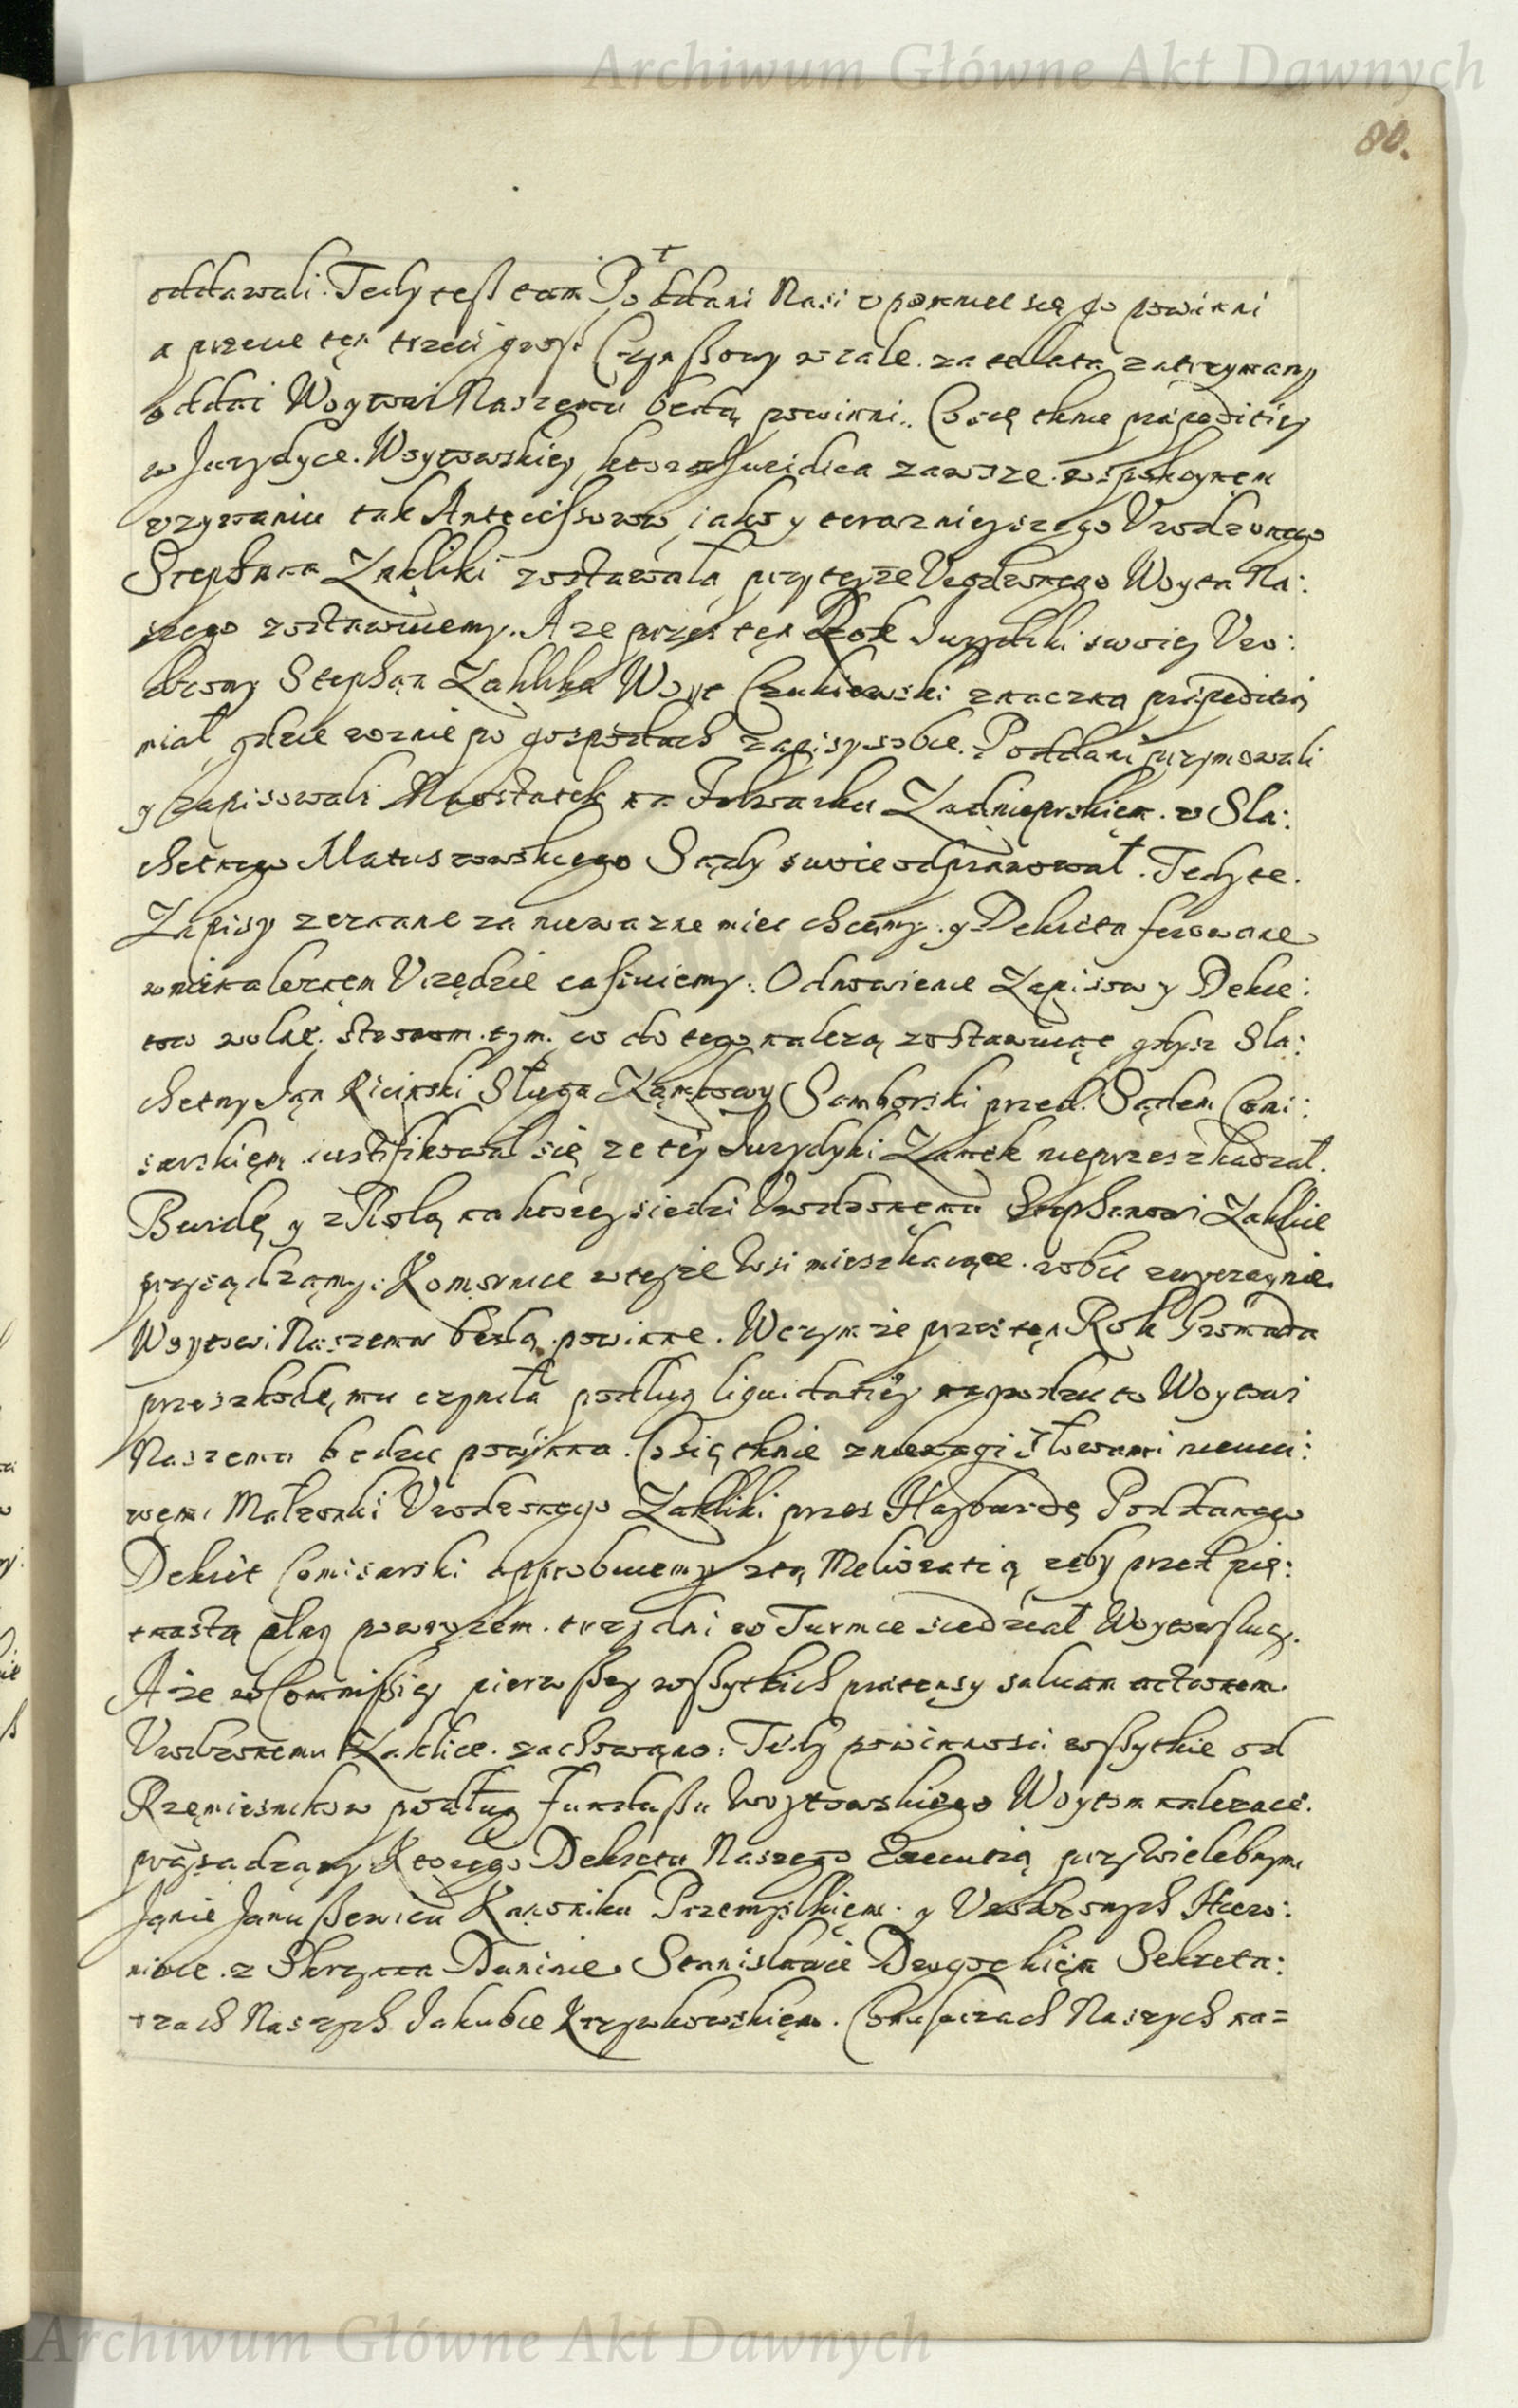 Archiwum Główne Akt Dawnych
80.
oddawali. Tedy teß tam Poddani Nasi upomniec się go powinni
a przecie ten trzeci grosz Czynßowy wcale za te lata zatrzymany
oddac Woytowi Naszemu będą powinni. Co się tknie praepeditiey
w Jurydyce Woytowskiey, ktora Juridica zawsze w spokoynem
uzywaniu tak Antecessorow, jako y terazniejszego Urodzonego
Stephana Zakliki zostawała przy teyze Urodzonego Woyta Na:
szego zostawuiemy. A ze przes ten Rok Jurydiki swoiey Uro:
dzony Stephan Zaklika Woyt Czukiewski znaczną praepeditią
miał, gdzie roznie po gospodach zapisy sobie Poddani przymowali
y zapisowali Mostatek na Folwarku Zadnieprskiem u Sla:
chetnego Matuszowskiego Sądy swoie odprawował. Tedy te
Zapisy zeznane za niewazne miec chcemy y Dekreta ferowane
w nienaleznem Urzędzie cassuiemy. Odnowienie Zapisow y Dekre:
tow wolne stronom tym co do tego nalezą zostawuiąc gdysz Sla:
chetny Jan Kicinski Sługa Zamkowy Samborski przed Sądem Comi:
sarskiem iustifikował się ze tey Jurydyki Zamek nieprzeszkadzał.
Burdę y z Rolą na ktorey siedzi Urodzonemu Stephanowi Zaklice
przysądzamy. Komornice w teyze Wsi mieszkaiące robic zwyczaynie
Woytowi Naszemu będą powinne. W czym ze przes ten Rok Gromada
przeszkodę mu czyniła podług liquidatiey nagrodzic to Woytowi
Naszemu będzie powinna. Co się tknie zniewagi słowami nieuczci:
wemi Małzonki Urodzonego Zakliki przes Hayburdę Poddanego
Dekret Comisarski approbuiemy z tą Melioratią zeby przed pię:
tnastą plag trzy dni w Turmie siedział Woytowskiey.
A ze w Commissiey pierwßey wßytkich praetensy saluam actionem
Urodzonemu Zaklice zachowano: Tedy powinnosci wßytkie od
Rzemiesnikow podług Fundußu Woytowskiego Woytom nalezące
przysądzamy. Ktorego Dekretu Naszego Executią przy Wielebnym
Janie Janußewicu Kanoniku Przemyslkiem y Urodzonych Hiero:
nimie z Skrzynna Duninie Stanisławie Drogockiem Sekreta:
rzach Naszych Jakubie Krzywkowskiem Comissarzach Naszych na=
Archiwum Główne Akt Dawnych